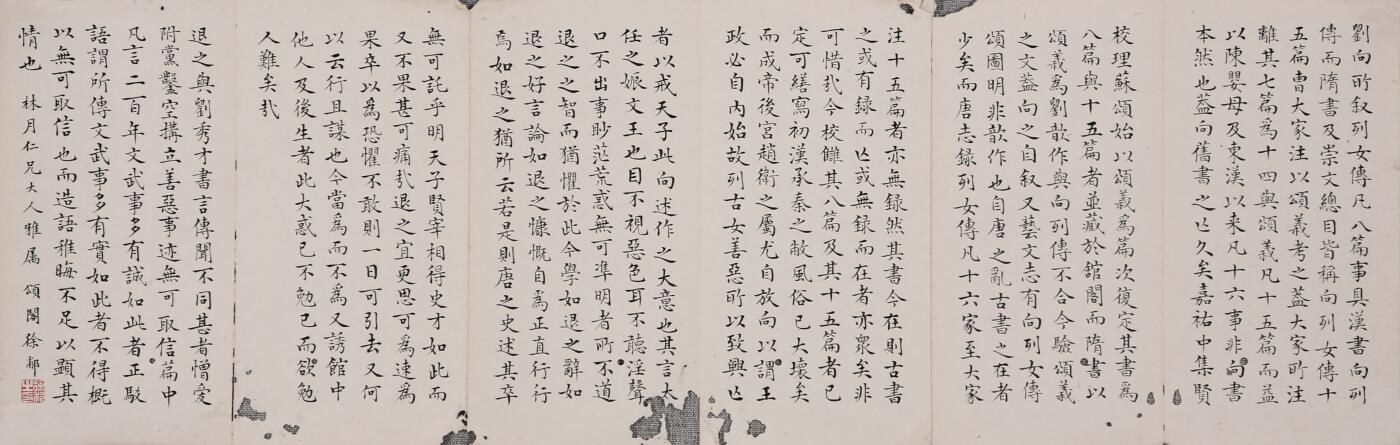 劉向所叙列女傳凡八篇事具漢書向列
傳而隋書及崇文總目皆稱向列女傳十
五篇曹大家注以頌義考之葢大家所注
離其七篇為十四與頌義凡十五篇而益
以陳嬰母及東漢以来凡十六事非向書
本然也葢向舊書之亡久矣嘉祐中集賢
校理蘇頌始以頌義為篇次復定其書為
八篇與十五篇者並藏於館閣而隋書以
頌義為劉歆作與向列傳不合今驗頌義
之文葢向之自叙又藝文志有向列女傳
頌圖明非歆作也自唐之亂古書之在者
少矣而唐志録列女傳凡十六家至大家
注十五篇者亦無録然其書今在則古書
之或有録而亡或無録而在者亦衆矣非
可惜哉今校讎其八篇及其十五篇者已
定可繕寫初漢承秦之敝風俗已大壞矣
而成帝後宫趙衛之屬尤自放向以謂王
政必自内始故列古女善惡所以致興亡
者以戒天子此向述作之大意也其言大
任之娠文王也目不視惡色耳不聽淫聲
口不出事眇茫荒惑無可準明者所不道
退之之智而猶懼於此今學如退之辭如
退之好言論如退之慷慨自為正直行行
焉如退之猶所云若是則唐之史述其卒
無可託乎明天子賢宰相得史才如此而
又不果甚可痛哉退之宜更思可為速為
果卒以為恐懼不敢則一日可引去又何
以云行且謀也今當為而不為又誘館中
他人及後生者此大惑已不勉已而欲勉
人難矣哉
退之與劉秀才書言傳聞不同甚者憎愛
附黨鑿空搆立善惡事迹無可取信篇中
凡言二百年文武事多有誠如此者正駁
語謂所傳文武事多多有實如此者不得概
以無可取信也而造語稚晦不足以顯其
情也 林月仁兄大人雅属 頌閣徐郙